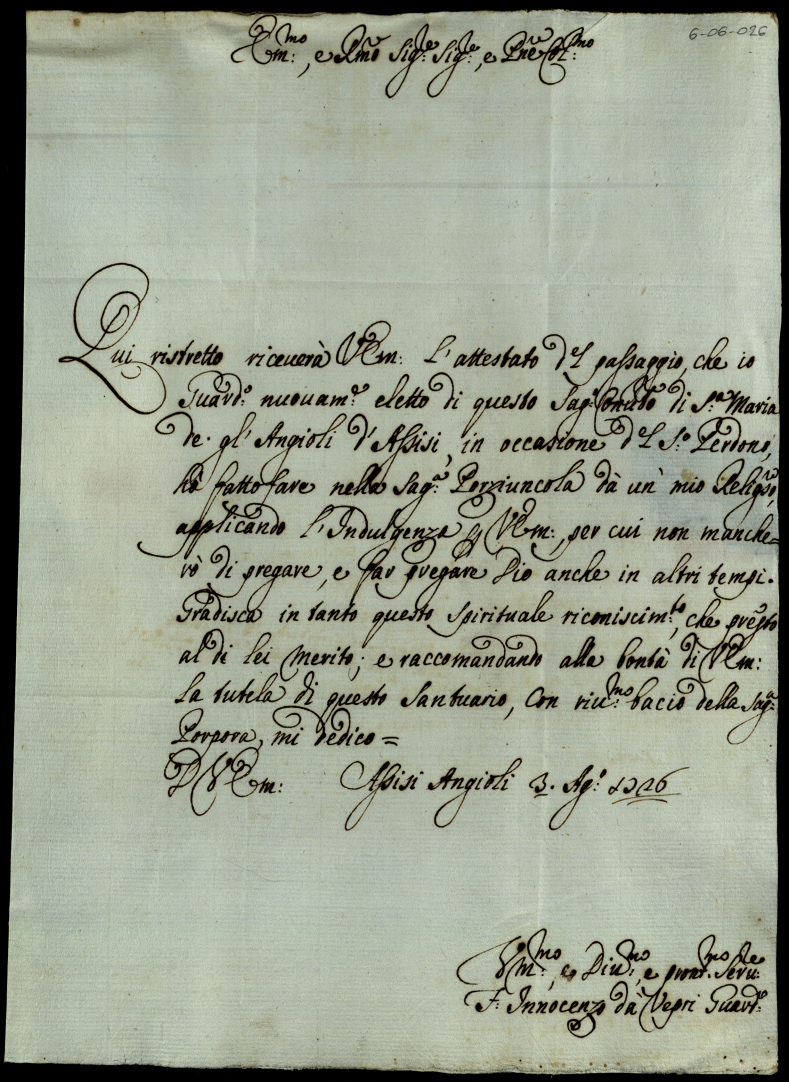 6-06-026
Em:mo, e Rmo Sig:re Sig:re, e Pne Col:mo
Qui ristretto riceuerà VEm: l'attestato del passaggio, che io
Guard:o nuouam:e eletto di questo Sag: Conuto di S:a Maria
de gl'Angioli d'Assisi, in occasione del S:o Perdono,
hò fatto fare nella Sag:a Porziuncola dà un mio Religso,
applicando l'Indulgenza p VEm:, per cui non manche=
rò di pregare, e far pregare Dio anche in altri tempi.
Gradisca in tanto questo spirituale riconiscim:to, che presto
al di lei merito; e raccomandando alla bontà di VEm:
la tutela di questo Santuario, con riu:mo bacio della Sag:a
Porpora, mi dedico =
D VEm: Assisi Angioli 3. Ag:o 1726
Vm:mo, e Diu:mo, e :mo Seru:re
F. Innocenzo dà Vepri Guard:o